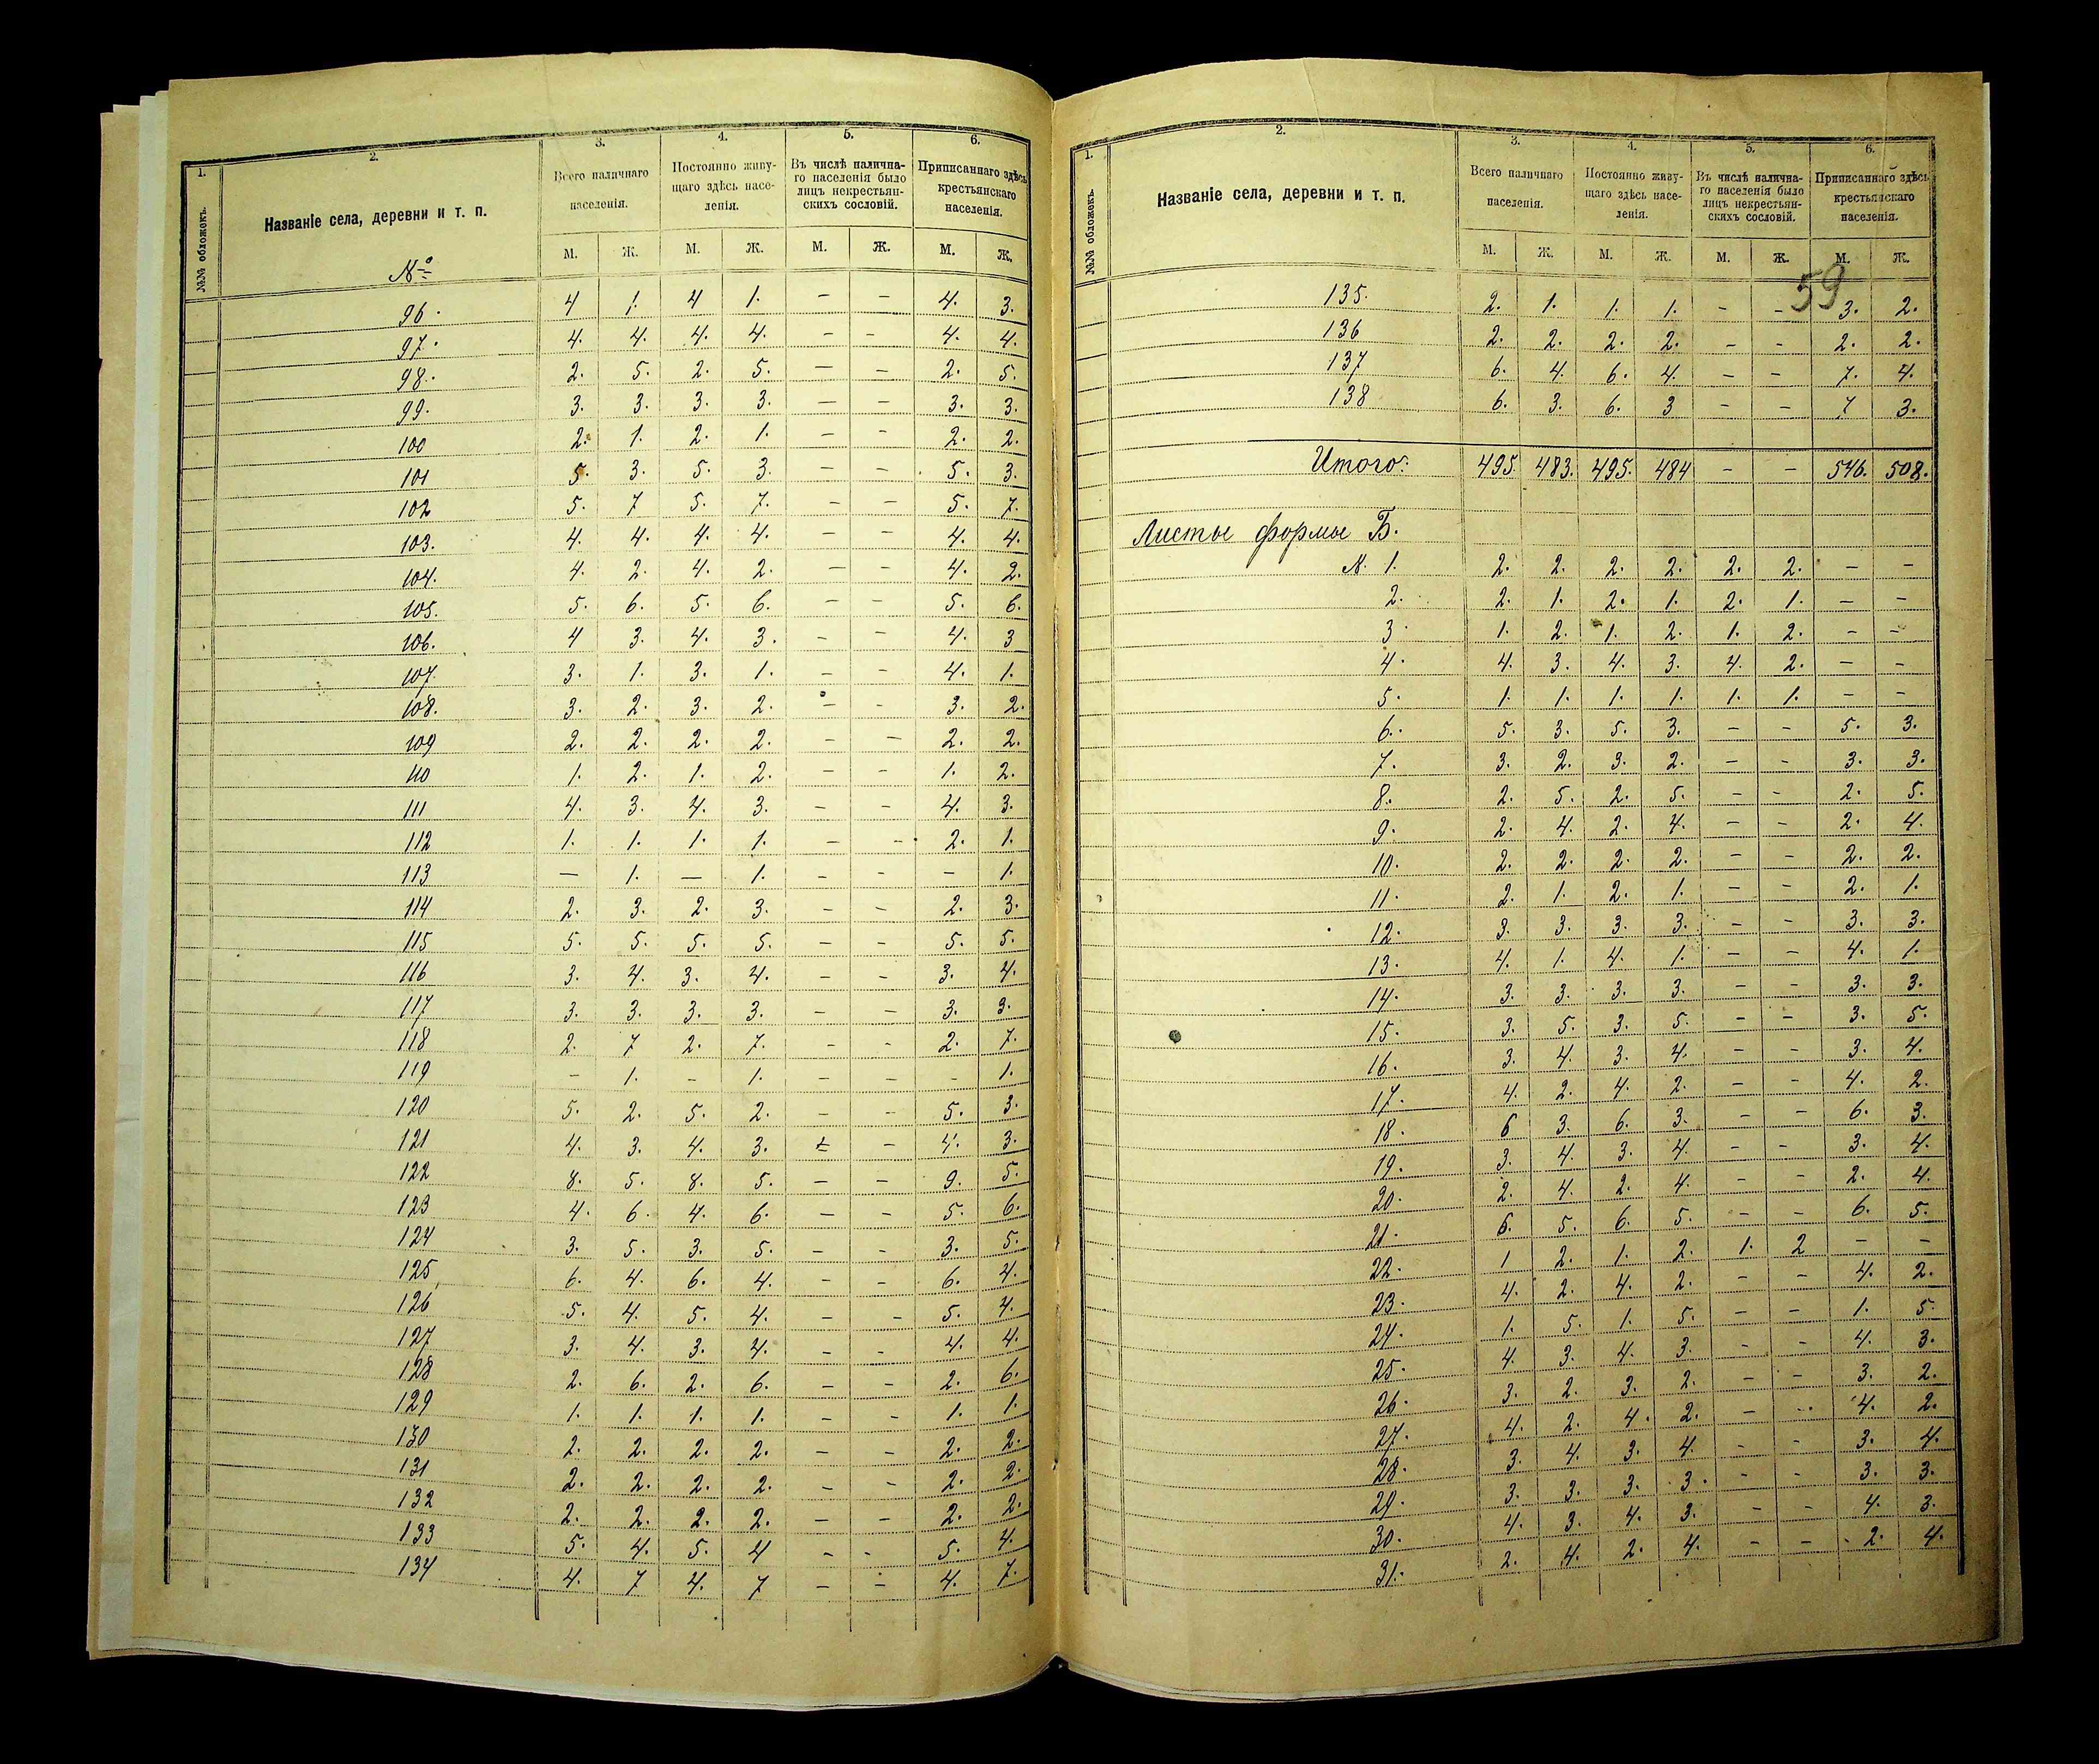 1. 2. 3. 4. 5. 6.
№№ обложекъ. Названіе села, деревни и т. п. Всего наличнаго населенія. Постоянно живущаго здѣсь населенія. Въ числѣ наличнаго населенія было лицъ некрестьянскихъ сословій. Приписаннаго здѣсь крестьянскаго населенія.
М. Ж. М. Ж. М. Ж. М. Ж.
№
96. 4 1. 4 1. – – 4. 3.
97. 4. 4. 4. 4. – – 4. 4.
98. 2. 5. 2. 5. – – 2. 5.
99. 3. 3. 3. 3. – – 3. 3.
100 2. 1. 2. 1. – – 2. 2.
101 5. 3. 5. 3. – – 5. 3.
102 5. 7 5. 7. – – 5. 7.
103. 4. 4. 4. 4. – – 4. 4.
104. 4. 2. 4. 2. – – 4. 2.
105. 5. 6. 5. 6. – – 5. 6.
106. 4 3. 4. 3. – – 4. 3
107. 3. 1. 3. 1. – – 4. 1.
108. 3. 2. 3. 2. – – 3. 2.
109 2. 2. 2. 2. – – 2. 2.
110 1. 2. 1. 2. – – 1. 2.
111 4. 3. 4. 3. – – 4. 3.
112 1. 1. 1. 1. – – 2. 1.
113 – 1. – 1. – – – 1.
114 2. 3. 2. 3. – – 2. 3.
115 5. 5. 5. 5. – – 5. 5.
116 3. 4. 3. 4. – – 3. 4.
117 3. 3. 3. 3. – – 3. 3.
118 2. 7 2. 7. – – 2. 7.
119 – 1. – 1. – – – 1.
120 5. 2. 5. 2. – – 5. 3.
121 4. 3. 4. 3. – – 4. 3.
122 8. 5. 8. 5. – – 9. 5.
123 4. 6. 4. 6. – – 5. 6.
124 3. 5. 3. 5. – – 3. 5.
125 6. 4. 6. 4. – – 6. 4.
126 5. 4. 5. 4. – – 5. 4.
127 3. 4. 3. 4. – – 4. 4.
128 2. 6. 2. 6. – – 2. 6.
129 1. 1. 1. 1. – – 1. 1.
130 2. 2. 2. 2. – – 2. 2.
131 2. 2. 2. 2. – – 2. 2.
132 2. 2. 2. 2. – – 2. 2.
133 5. 4. 5. 4 – – 5. 4.
134 4. 7 4. 7 – – 4. 7.
1. 2. 3. 4. 5. 6.
№№ обложекъ. Названіе села, деревни и т. п. Всего наличнаго населенія. Постоянно живущаго здѣсь населенія. Въ числѣ наличнаго населенія было лицъ некрестьянскихъ сословій. Приписаннаго здѣсь крестьянскаго населенія.
М. Ж. М. Ж. М. Ж. М. Ж.
59
135. 2. 1. 1. 1. – – 3. 2.
136 2. 2. 2. 2. – – 2. 2.
137 6. 4. 6. 4. – – 7. 4.
138 6. 3. 6. 3 – – 7 3.
Итого: 495. 483. 495. 484 – – 546. 508.
Листы формы Б.
N. 1. 2. 2. 2. 2. 2. 2. – –
2. 2. 1. 2. 1. 2. 1. – –
3. 1. 2. 1. 2. 1. 2. – –
4. 4. 3. 4. 3. 4. 2. – –
5. 1. 1. 1. 1. 1. 1. – –
6. 5. 3. 5. 3. – – 5. 3.
7. 3. 2. 3. 2. – – 3. 3.
8. 2. 5. 2. 5. – – 2. 5.
9. 2. 4. 2. 4. – – 2. 4.
10. 2. 2. 2. 2. – – 2. 2.
11. 2. 1. 2. 1. – – 2. 1.
12. 3. 3. 3. 3. – – 3. 3.
13. 4. 1. 4. 1. – – 4. 1.
14. 3. 3. 3. 3. – – 3. 3.
15. 3. 5. 3. 5. – – 3. 5.
16. 3. 4. 3. 4. – – 3. 4.
17. 4. 2. 4. 2. – – 4. 2.
18. 6 3. 6. 3. – – 6. 3.
19. 3. 4. 3. 4. – – 3. 4.
20. 2. 4. 2. 4. – – 2. 4.
21. 6. 5. 6. 5. – – 6. 5.
22. 1 2. 1. 2. 1. 2 – –
23. 4. 2. 4. 2. – – 4. 2.
24. 1. 5. 1. 5. – – 1. 5.
25. 4. 3. 4. 3. – – 4. 3.
26. 3. 2. 3. 2. – – 3. 2.
27. 4. 2. 4. 2. – – 4. 2.
28. 3. 4. 3. 4. – – 3. 4.
29. 3. 3. 3. 3. – – 3. 3.
30. 4. 3. 4. 3. – – 4. 3.
31. 2. 4. 2. 4. – – 2. 4.